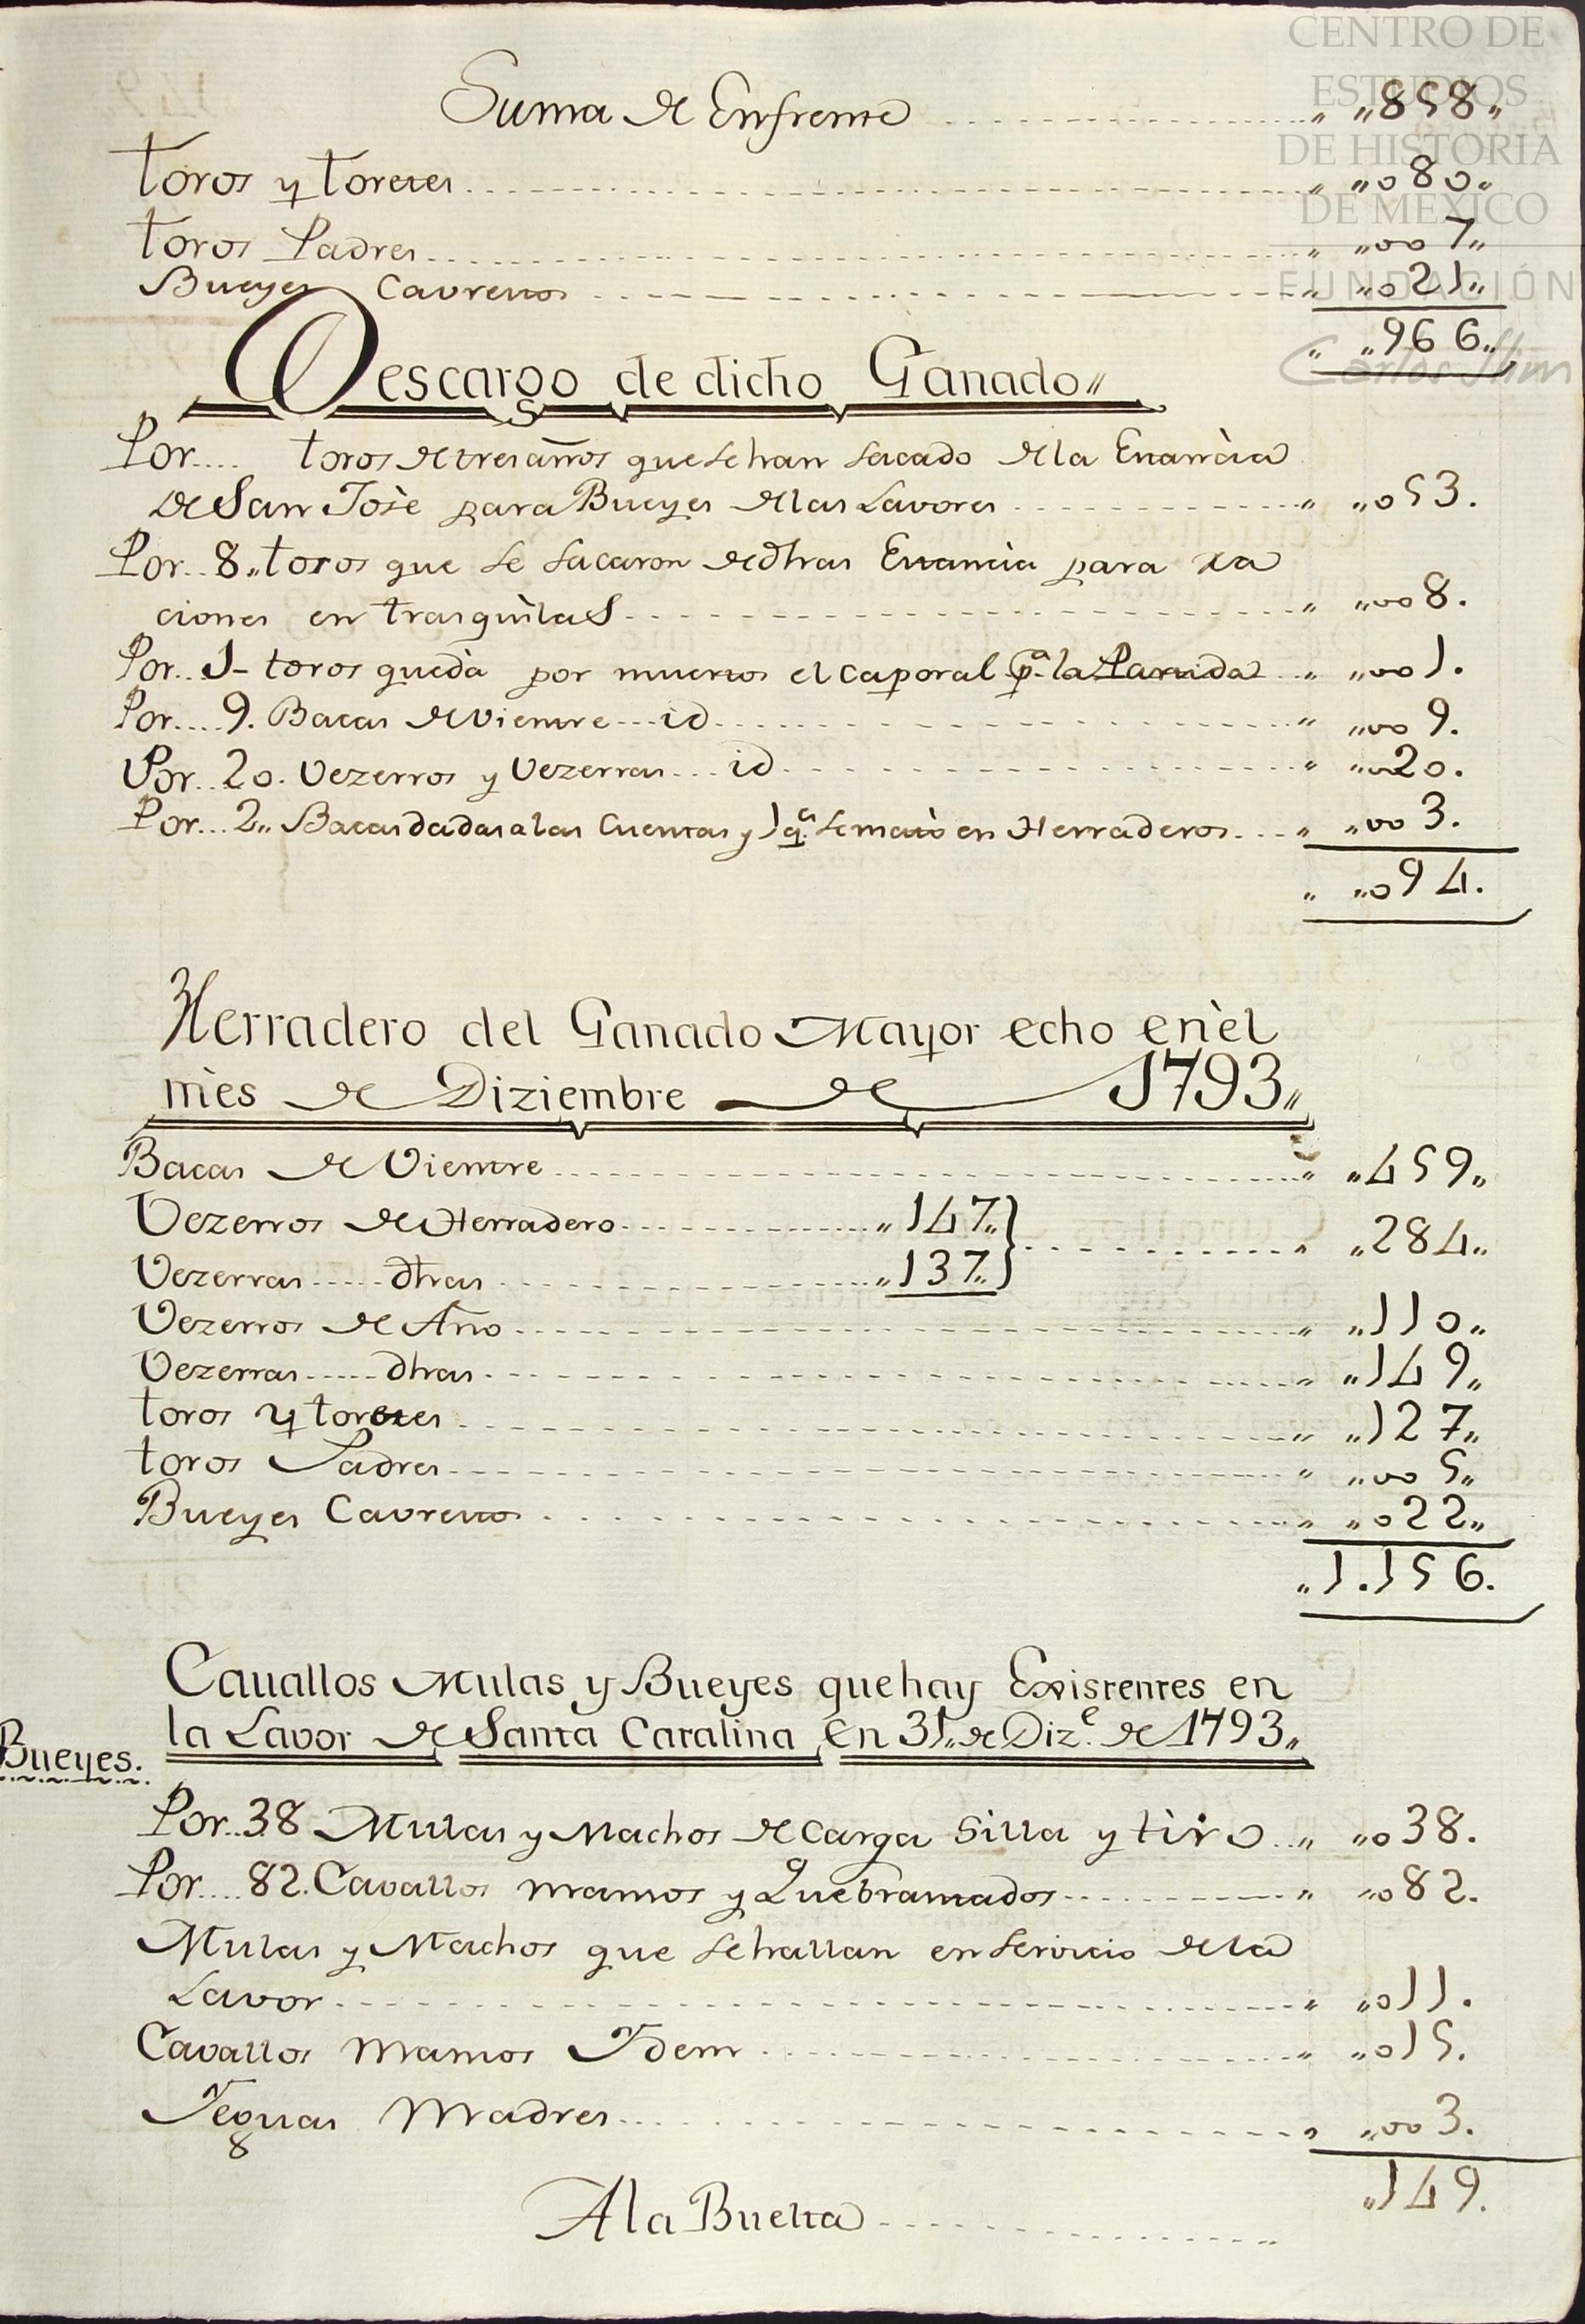 CENTRO DE
ESTUDIOS
DE HISTORIA
DE MÉXICO
FUNDACIÓN
Carlos Slim
Suma de Enfrente ,, ,,858,,
toros y toretes ,, ,,080,,
toros Padres ,, ,,007,,
Bueyes Cavrestos ,, ,,021,,
,, ,,966,,
Descargo de dicho Ganado,,
Por.... toros de tres años que se han sacado de la Estancia
de San Josè para Bueyes de las Lavores ,, ,,053.
Por..8,,toros que se sacaron de dhas Estancia para ra
ciones en trasquilas ,, ,,008.
Por..1- toros quedà por muertos el caporal pª. la Partida ,, ,,001.
Por....9. Bacas de Vientre....id ,, ,,009.
Por..20. Vezerros y Vezerras...id ,, ,,020.
Por...2,, Bacas dadas a las Cuentas y 1 q.e se matò en Herraderos ,, ,,003.
,, ,,094.
Herradero del Ganado Mayor echo en èl
mes de Diziembre de 1793,,
Bacas de Vientre ,, ,,459,,
Vezerros de Herradero ,,147,,} ,, ,,284,,
Vezerras.....dhas ,,137,,}
Vezerros de Año ,, ,,110,,
Vezerras.....dhas ,, ,,149,,
toros y toretes ,, ,,127,,
toros Padres ,, ,,005,,
Bueyes Cavrestos ,, ,,022,,
,,1.156.
Cauallos Mulas y Bueyes que hay Existentes en
la Lavor de Santa Catalina en 31,, de Diz.e de 1793,,
Bueyes.
Por..38 Mulas y Machos de carga Silla y tiro ,, ,,038.
Por....82. Cavallos mansos y Quebrantados ,, ,,082.
Mulas y Machos que se hallan en servicio de la
Lavor ,, ,,011.
Cavallos Mansos Ydem ,, ,,015.
Yeguas Madres ,, ,,003.
,,149.
A la Buelta